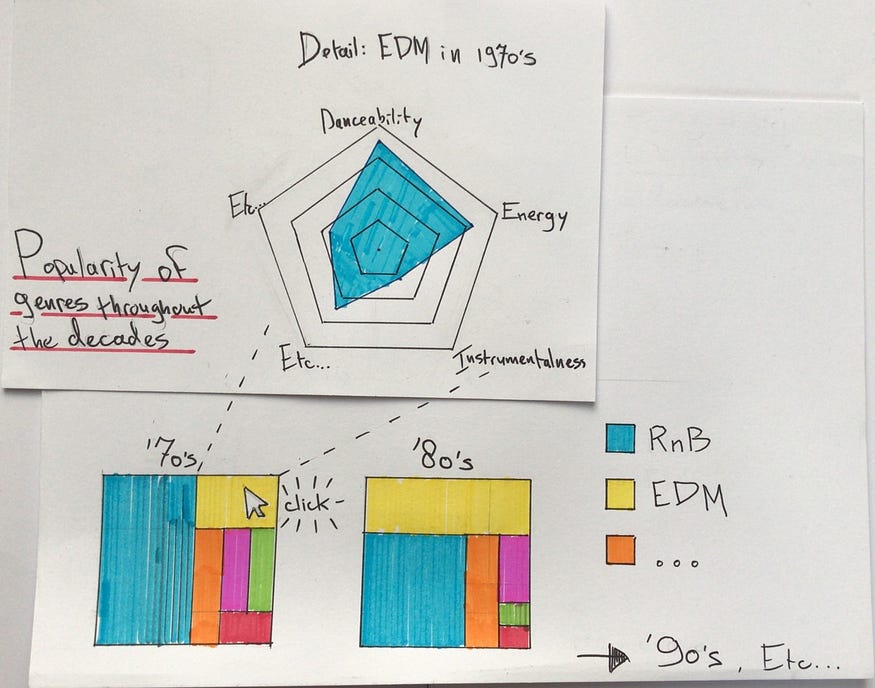 Detail: EDM in 1970's
Danceability
Etc...
Energy
Popularity of
genres throughout
the decades
Etc...
Instrumentalness
'70's
'80's
click
RnB
EDM
...
'90's, Etc...